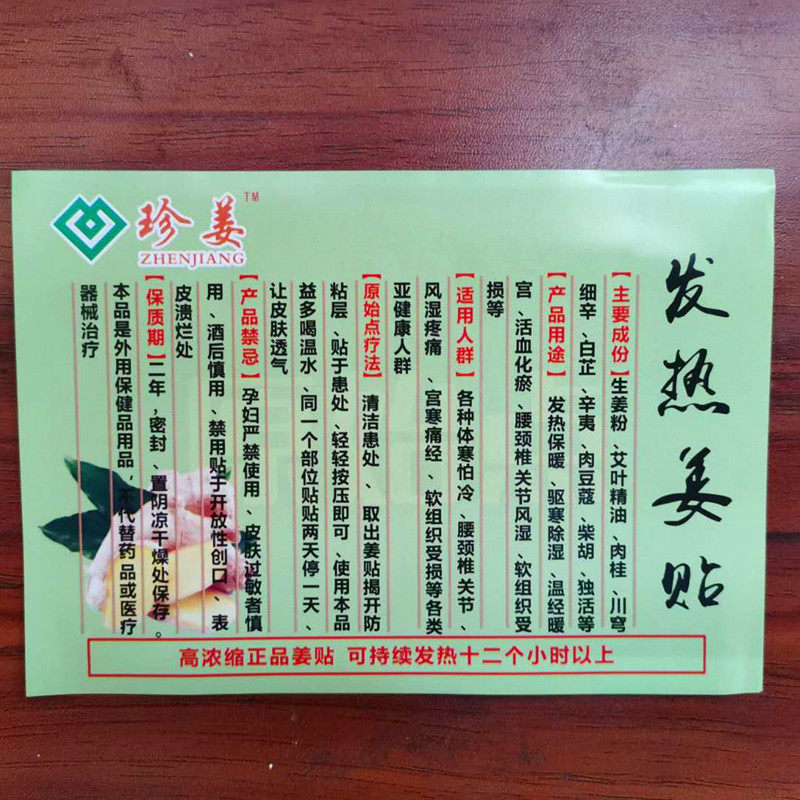 珍姜
TM
ZHENJIANG
发热姜贴
【主要成份】生姜粉、艾叶精油、肉桂、川穹
细辛、白芷、辛夷、肉豆蔻、柴胡、独活等
【产品用途】发热保暖、驱寒除湿、温经暖
宫、活血化瘀、腰颈椎关节风湿、软组织受
损等
【适用人群】各种体寒怕冷、腰颈椎关节、
风湿疼痛、宫寒痛经、软组织受损等各类
亚健康人群
【原始点疗法】清洁患处、取出姜贴揭开防
粘层、贴于患处、轻轻按压即可、使用本品
益多喝温水、同一个部位贴贴两天停一天、
让皮肤透气
【产品禁忌】孕妇严禁使用、皮肤过敏者慎
用、酒后慎用、禁用贴于开放性创口、表
皮溃烂处
【保质期】二年,密封、置阴凉干燥处保存。
本品是外用保健品用品,不代替药品或医疗
器械治疗
高浓缩正品姜贴 可持续发热十二个小时以上